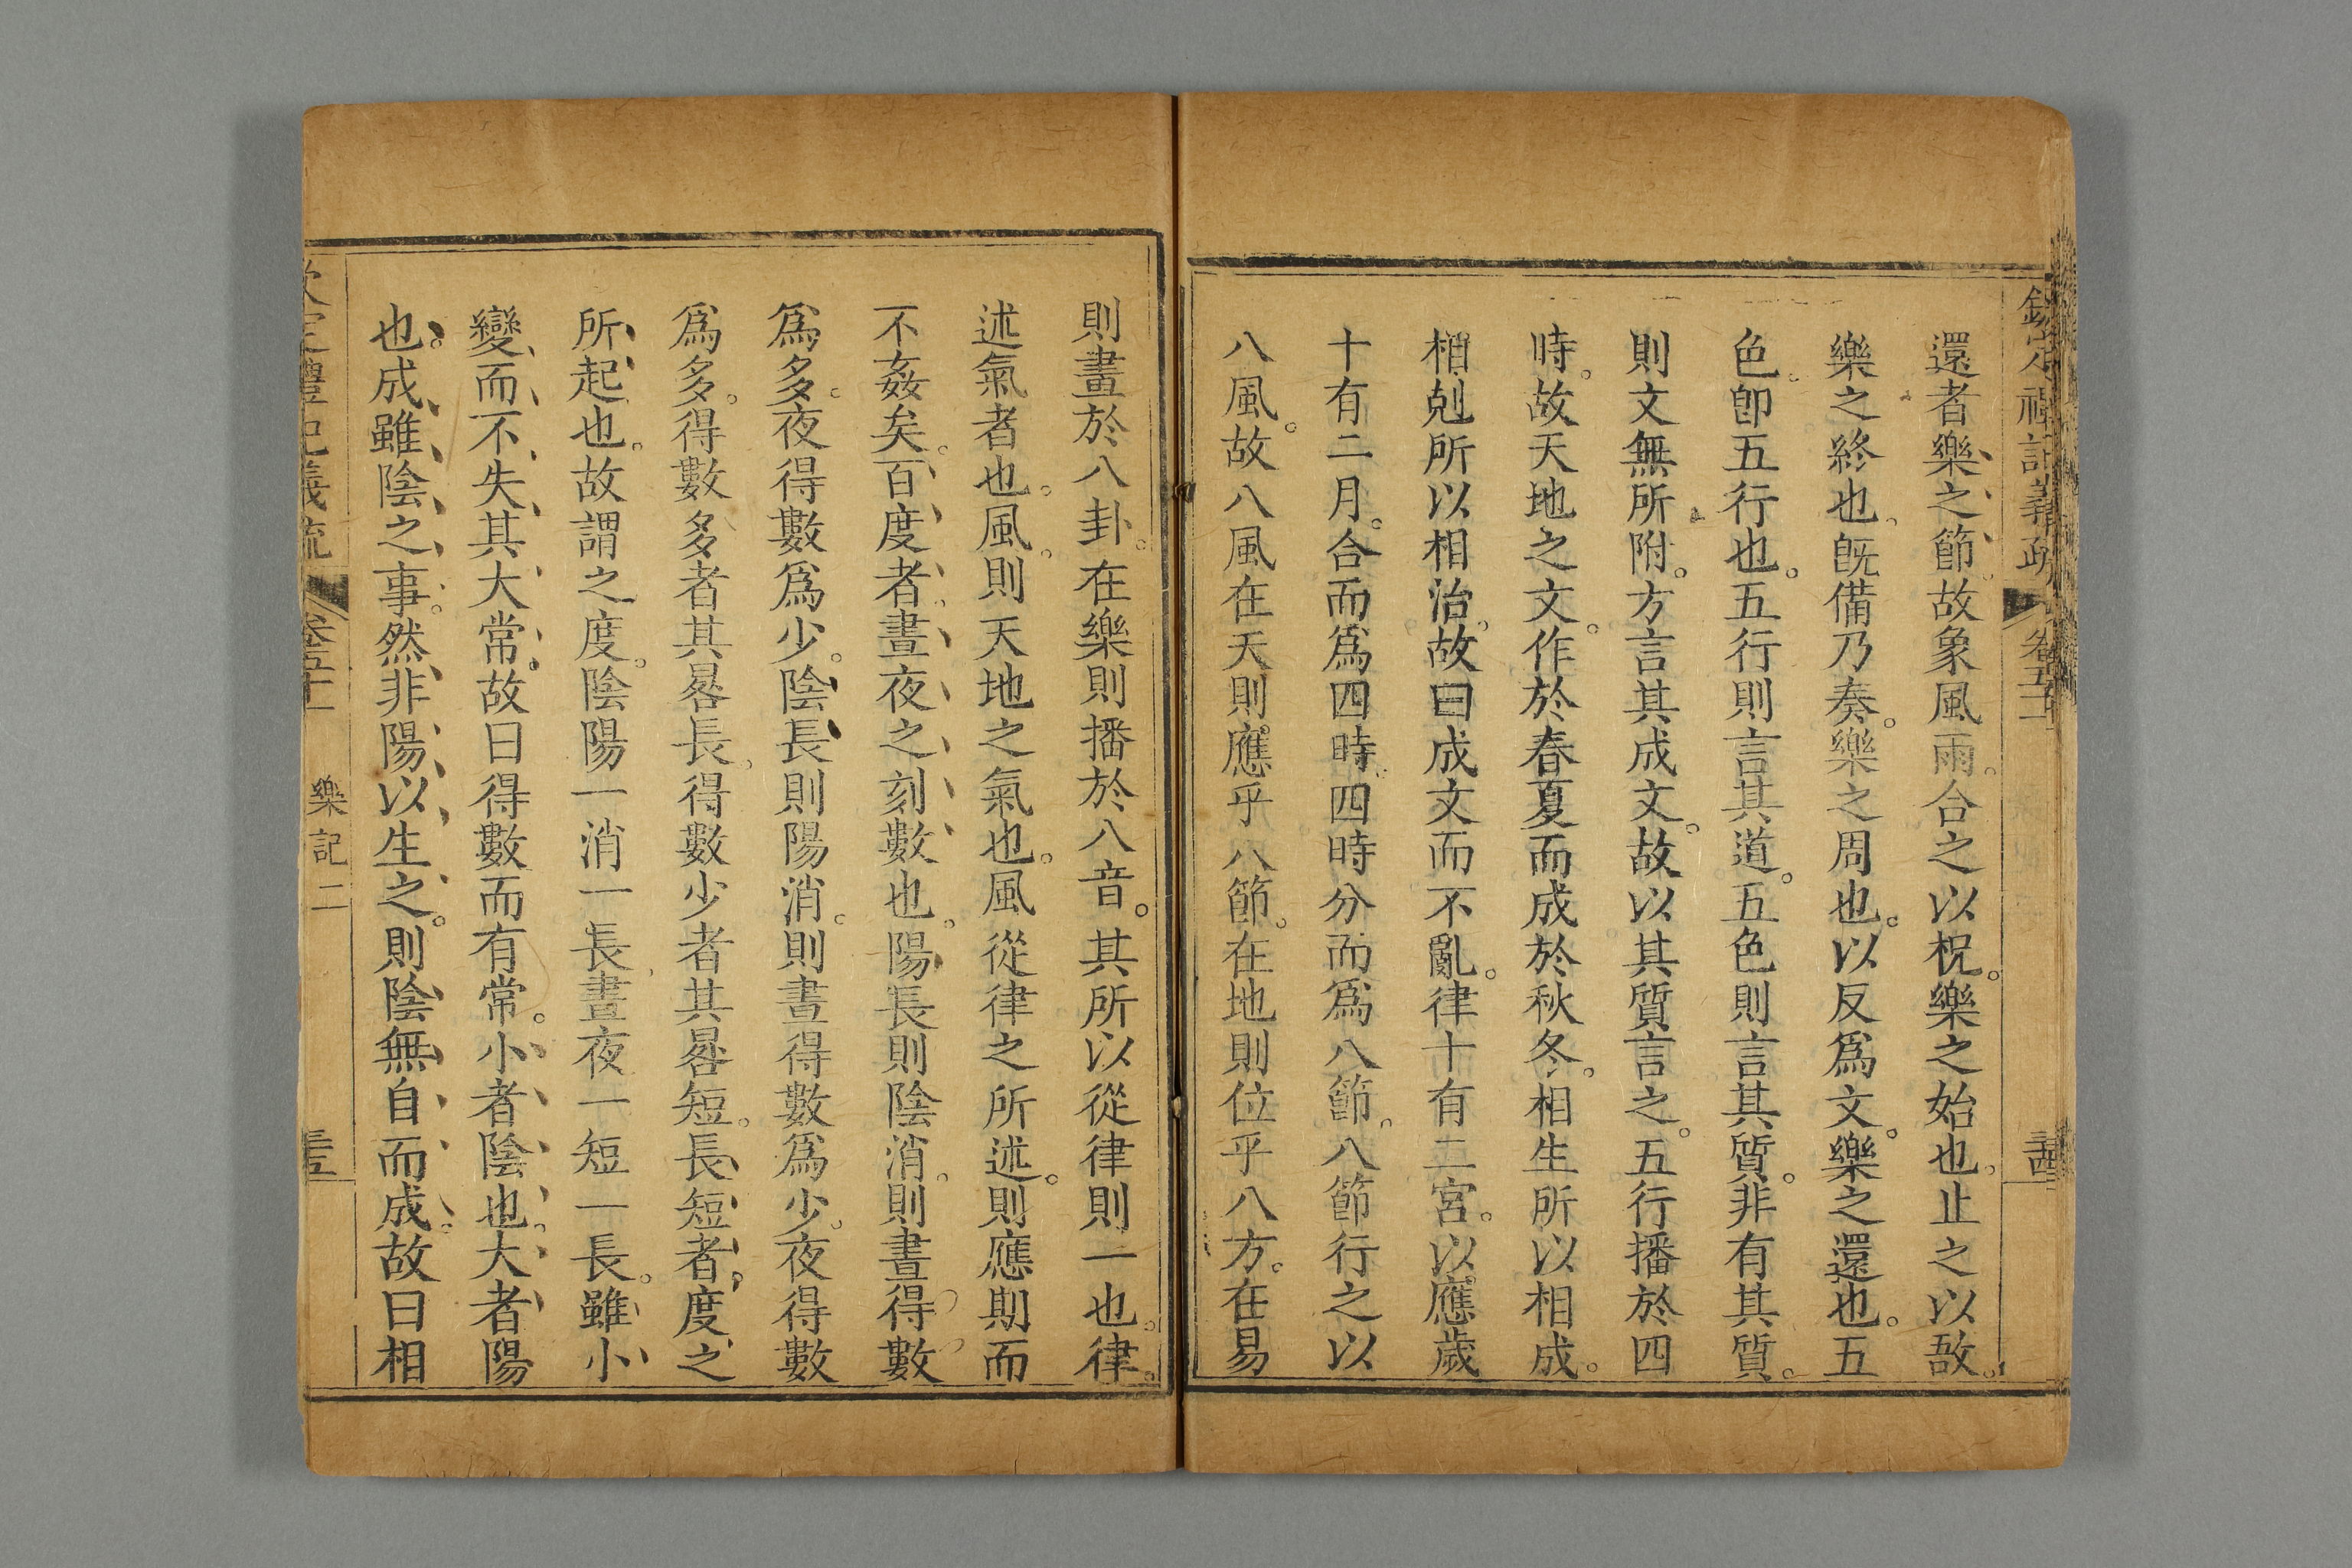 欽定禮記義疏 卷五十一 三十四
還者樂之節故象風雨。合之以柷。樂之始也。止之以敔。
樂之終也。旣備乃奏。樂之周也。以反爲文。樂之還也。五
色。卽五行也。五行則言其道。五色則言其質。非有其質。
則文無所附。方言其成文。故以其質言之。五行播於四
時。故天地之文。作於春夏而成於秋冬。相生所以相成。
相剋所以相治。故曰成文而不亂。律十有二宮。以應歲
十有二月。合而爲四時。四時分而爲八節。八節行之以
八風。故八風在天則應乎八節。在地則位乎八方。在易
則畫於八卦。在樂則播於八音。其所以從律則一也。律。
述氣者也。風。則天地之氣也。風從律之所述。則應期而
不姦矣。百度者。晝夜之刻數也。陽長則陰消。則晝得數
爲多。夜得數爲少。陰長則陽消。則晝得數爲少。夜得數
爲多。得數多者其晷長。得數少者其晷短。長短者。度之
所起也。故謂之度。陰陽一消一長。晝夜一短一長。雖小
變而不失其大常。故曰得數而有常。小者陰也。大者陽
也。成雖陰之事。然非陽以生之。則陰無自而成。故曰相
欽定禮記義疏 卷五十一 樂記二 三十五